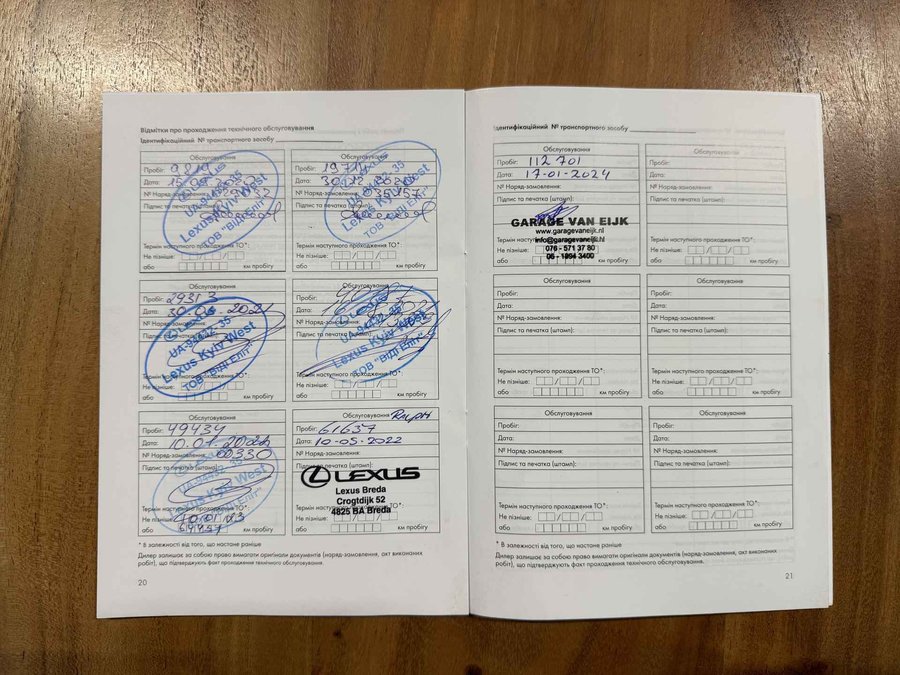 Відмітки про проходження технічного обслуговування
Ідентифікаційний № транспортного засобу
Обслуговування
Пробіг: 9 819
Дата:
№ Наряд-замовлення:
Підпис та печатка (штамп):
UA-94432-35
Lexus Kyiv West
ТОВ "ВІДІ Еліт"
Термін наступного проходження ТО*:
Не пізніше:
або км пробігу
Обслуговування
Пробіг:
Дата: 30.12
№ Наряд-замовлення:
Підпис та печатка (штамп):
LEXUS
UA-94432-35
Lexus Kyiv West
ТОВ "ВІДІ Еліт"
Термін наступного проходження ТО*:
Не пізніше:
або км пробігу
Обслуговування
Пробіг: 29313
Дата:
№ Наряд-замовлення:
Підпис та печатка (штамп):
LEXUS
UA-94432-35
Lexus Kyiv West
ТОВ "ВІДІ Еліт"
Термін наступного проходження ТО*:
Не пізніше:
або км пробігу
Обслуговування
Пробіг:
Дата:
№ Наряд-замовлення:
Підпис та печатка (штамп):
LEXUS
UA-94432-35
Lexus Kyiv West
ТОВ "ВІДІ Еліт"
Термін наступного проходження ТО*:
Не пізніше:
або км пробігу
Обслуговування
Пробіг: 49434
Дата: 10.01.2022
№ Наряд-замовлення: 00330
Підпис та печатка (штамп):
UA-94432-35
Lexus Kyiv West
ТОВ "ВІДІ Еліт"
Термін наступного проходження ТО*:
Не пізніше: 10 01 23
або км пробігу
Обслуговування Ralph
Пробіг: 61637
Дата: 10-05-2022
№ Наряд-замовлення:
Підпис та печатка (штамп):
LEXUS
Lexus Breda
Crogtdijk 52
4825 BA Breda
Термін наступного проходження ТО*:
Не пізніше:
або км пробігу
* В залежності від того, що настане раніше
Дилер залишає за собою право вимагати оригінали документів (наряд-замовлення, акт виконаних
робіт), що підтверджують факт проходження технічного обслуговування.
20
Ідентифікаційний № транспортного засобу
Обслуговування
Пробіг: 112 701
Дата: 17-01-2024
№ Наряд-замовлення:
Підпис та печатка (штамп):
GARAGE VAN EIJK
www.garagevaneijk.nl
info@garagevaneijk.nl
076 - 571 37 80
06 - 1994 3400
Термін наступного проходження ТО*:
Не пізніше:
або км пробігу
Обслуговування
Пробіг:
Дата:
№ Наряд-замовлення:
Підпис та печатка (штамп):
Термін наступного проходження ТО*:
Не пізніше:
або км пробігу
Обслуговування
Пробіг:
Дата:
№ Наряд-замовлення:
Підпис та печатка (штамп):
Термін наступного проходження ТО*:
Не пізніше:
або км пробігу
Обслуговування
Пробіг:
Дата:
№ Наряд-замовлення:
Підпис та печатка (штамп):
Термін наступного проходження ТО*:
Не пізніше:
або км пробігу
Обслуговування
Пробіг:
Дата:
№ Наряд-замовлення:
Підпис та печатка (штамп):
Термін наступного проходження ТО*:
Не пізніше:
або км пробігу
Обслуговування
Пробіг:
Дата:
№ Наряд-замовлення:
Підпис та печатка (штамп):
Термін наступного проходження ТО*:
Не пізніше:
або км пробігу
* В залежності від того, що настане раніше
Дилер залишає за собою право вимагати оригінали документів (наряд-замовлення, акт виконаних
робіт), що підтверджують факт проходження технічного обслуговування.
21